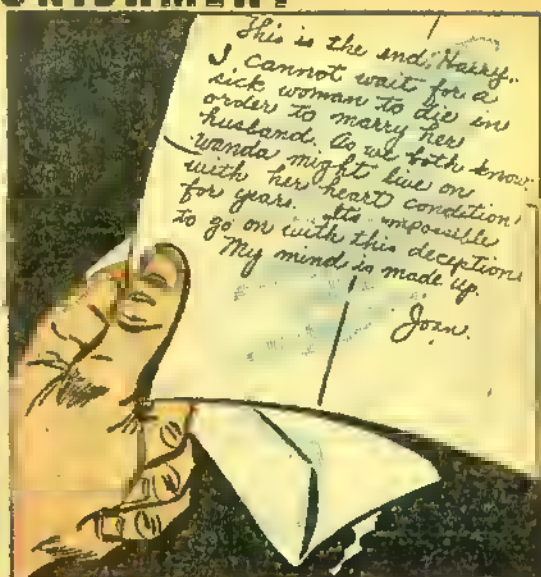 This is the end, Harry.
I cannot wait for a
sick woman to die in
order to marry her
husband. As we both know.
Wanda might live on
with her heart condition
for years. Its impossible
to go on with this deception
My mind is made up.
Joan.